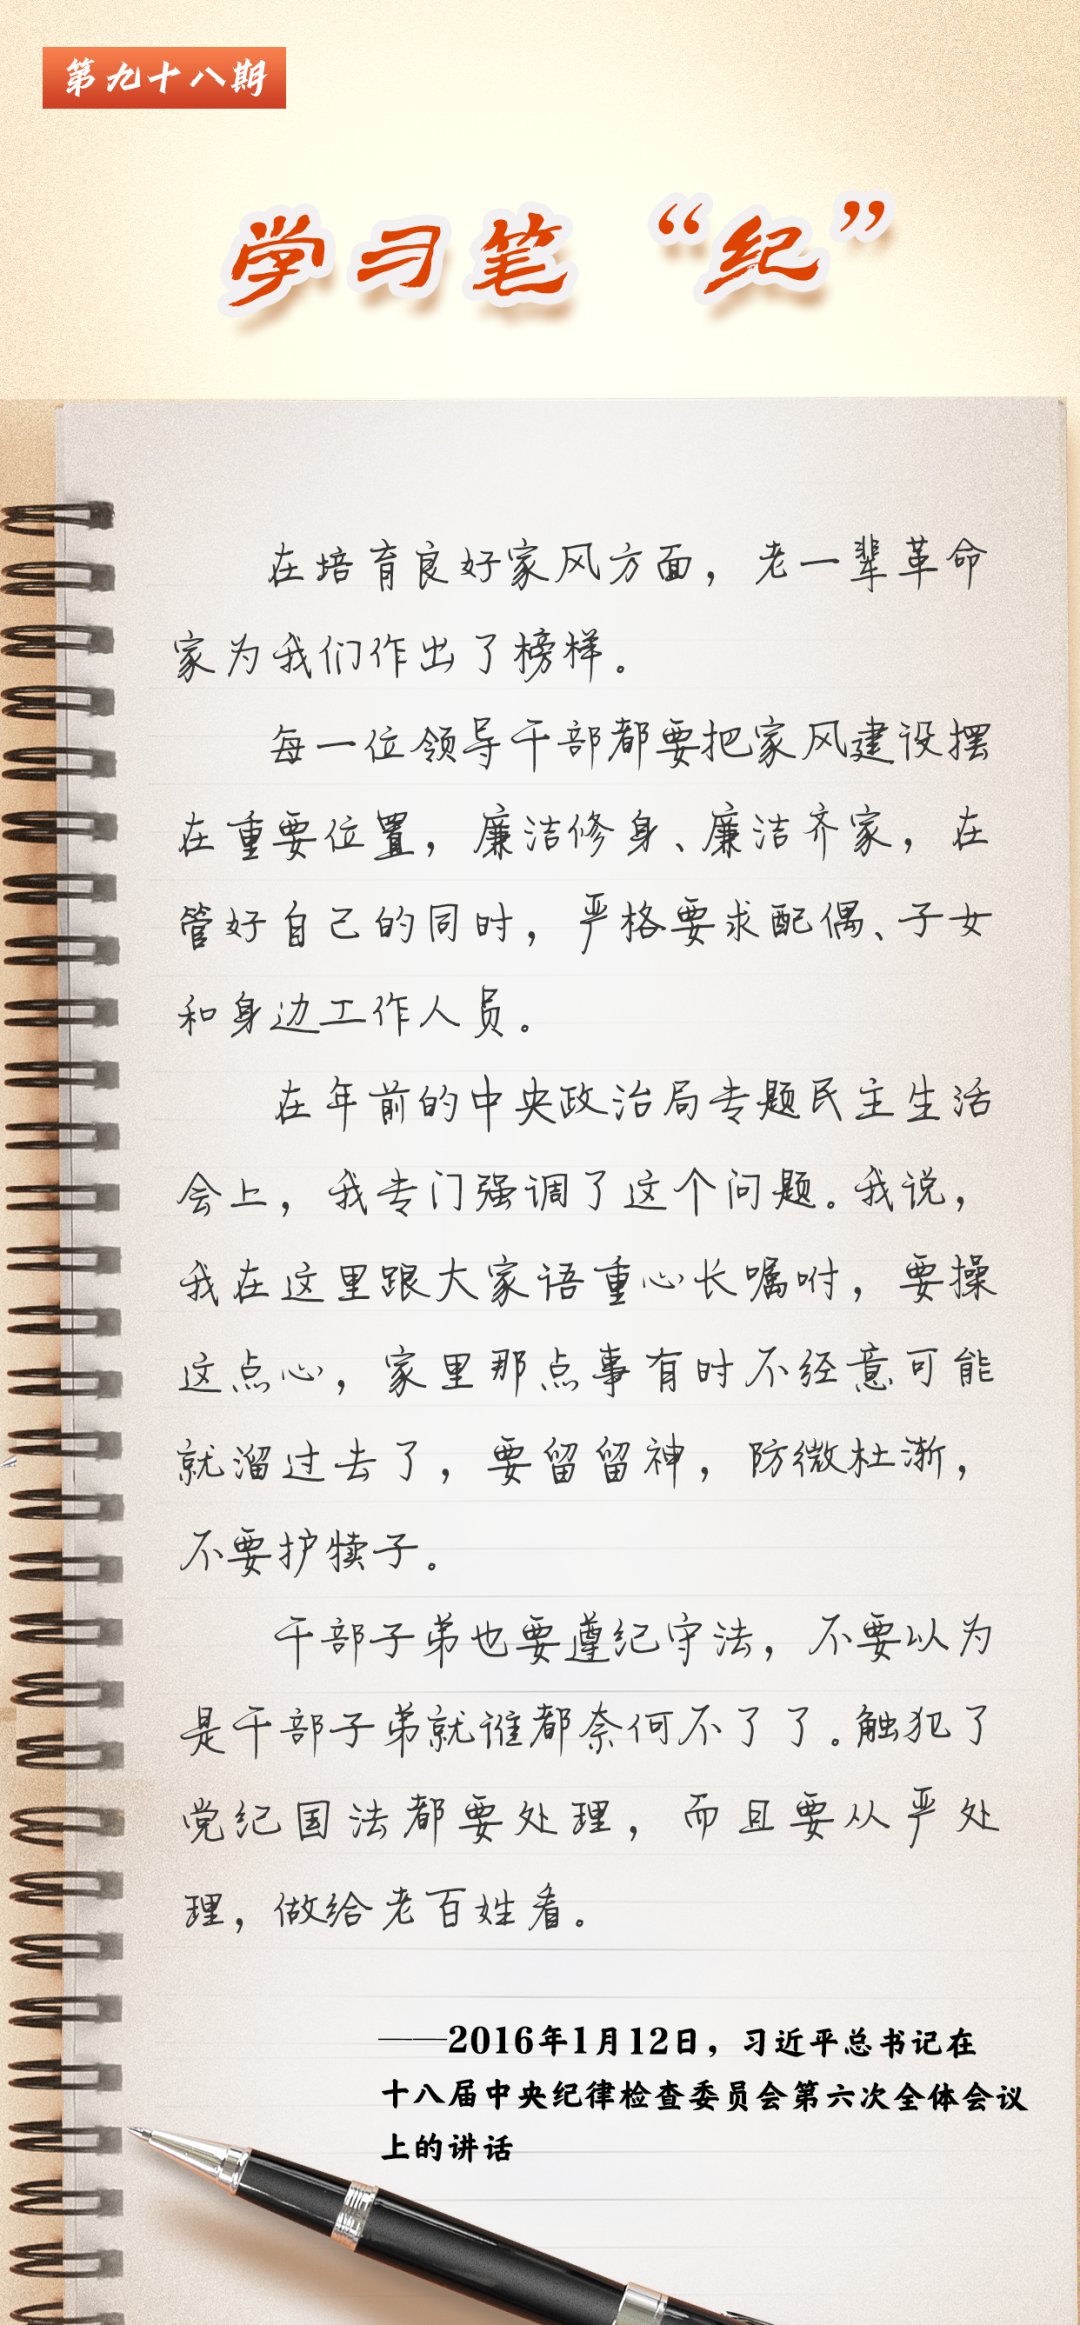 第九十八期
学习笔“纪”
在培育良好家风方面，老一辈革命
家为我们作出了榜样。
每一位领导干部都要把家风建设摆
在重要位置，廉洁修身、廉洁齐家，在
管好自己的同时，严格要求配偶、子女
和身边工作人员。
在年前的中央政治局专题民主生活
会上，我专门强调了这个问题。我说，
我在这里跟大家语重心长嘱咐，要操
这点心，家里那点事有时不经意可能
就溜过去了，要留留神，防微杜渐，
不要护犊子。
干部子弟也要遵纪守法，不要以为
是干部子弟就谁都奈何不了了。触犯了
党纪国法都要处理，而且要从严处
理，做给老百姓看。
——2016年1月12日，习近平总书记在
十八届中央纪律检查委员会第六次全体会议
上的讲话